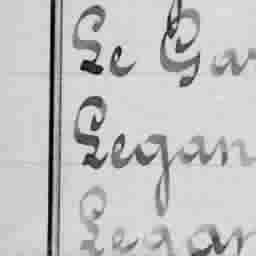 Le Gar
Legan
Legar